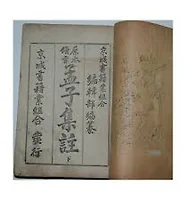 京城書籍業組合
編輯部編纂
原本
備旨
孟子集註
下
京城書籍業組合 發行